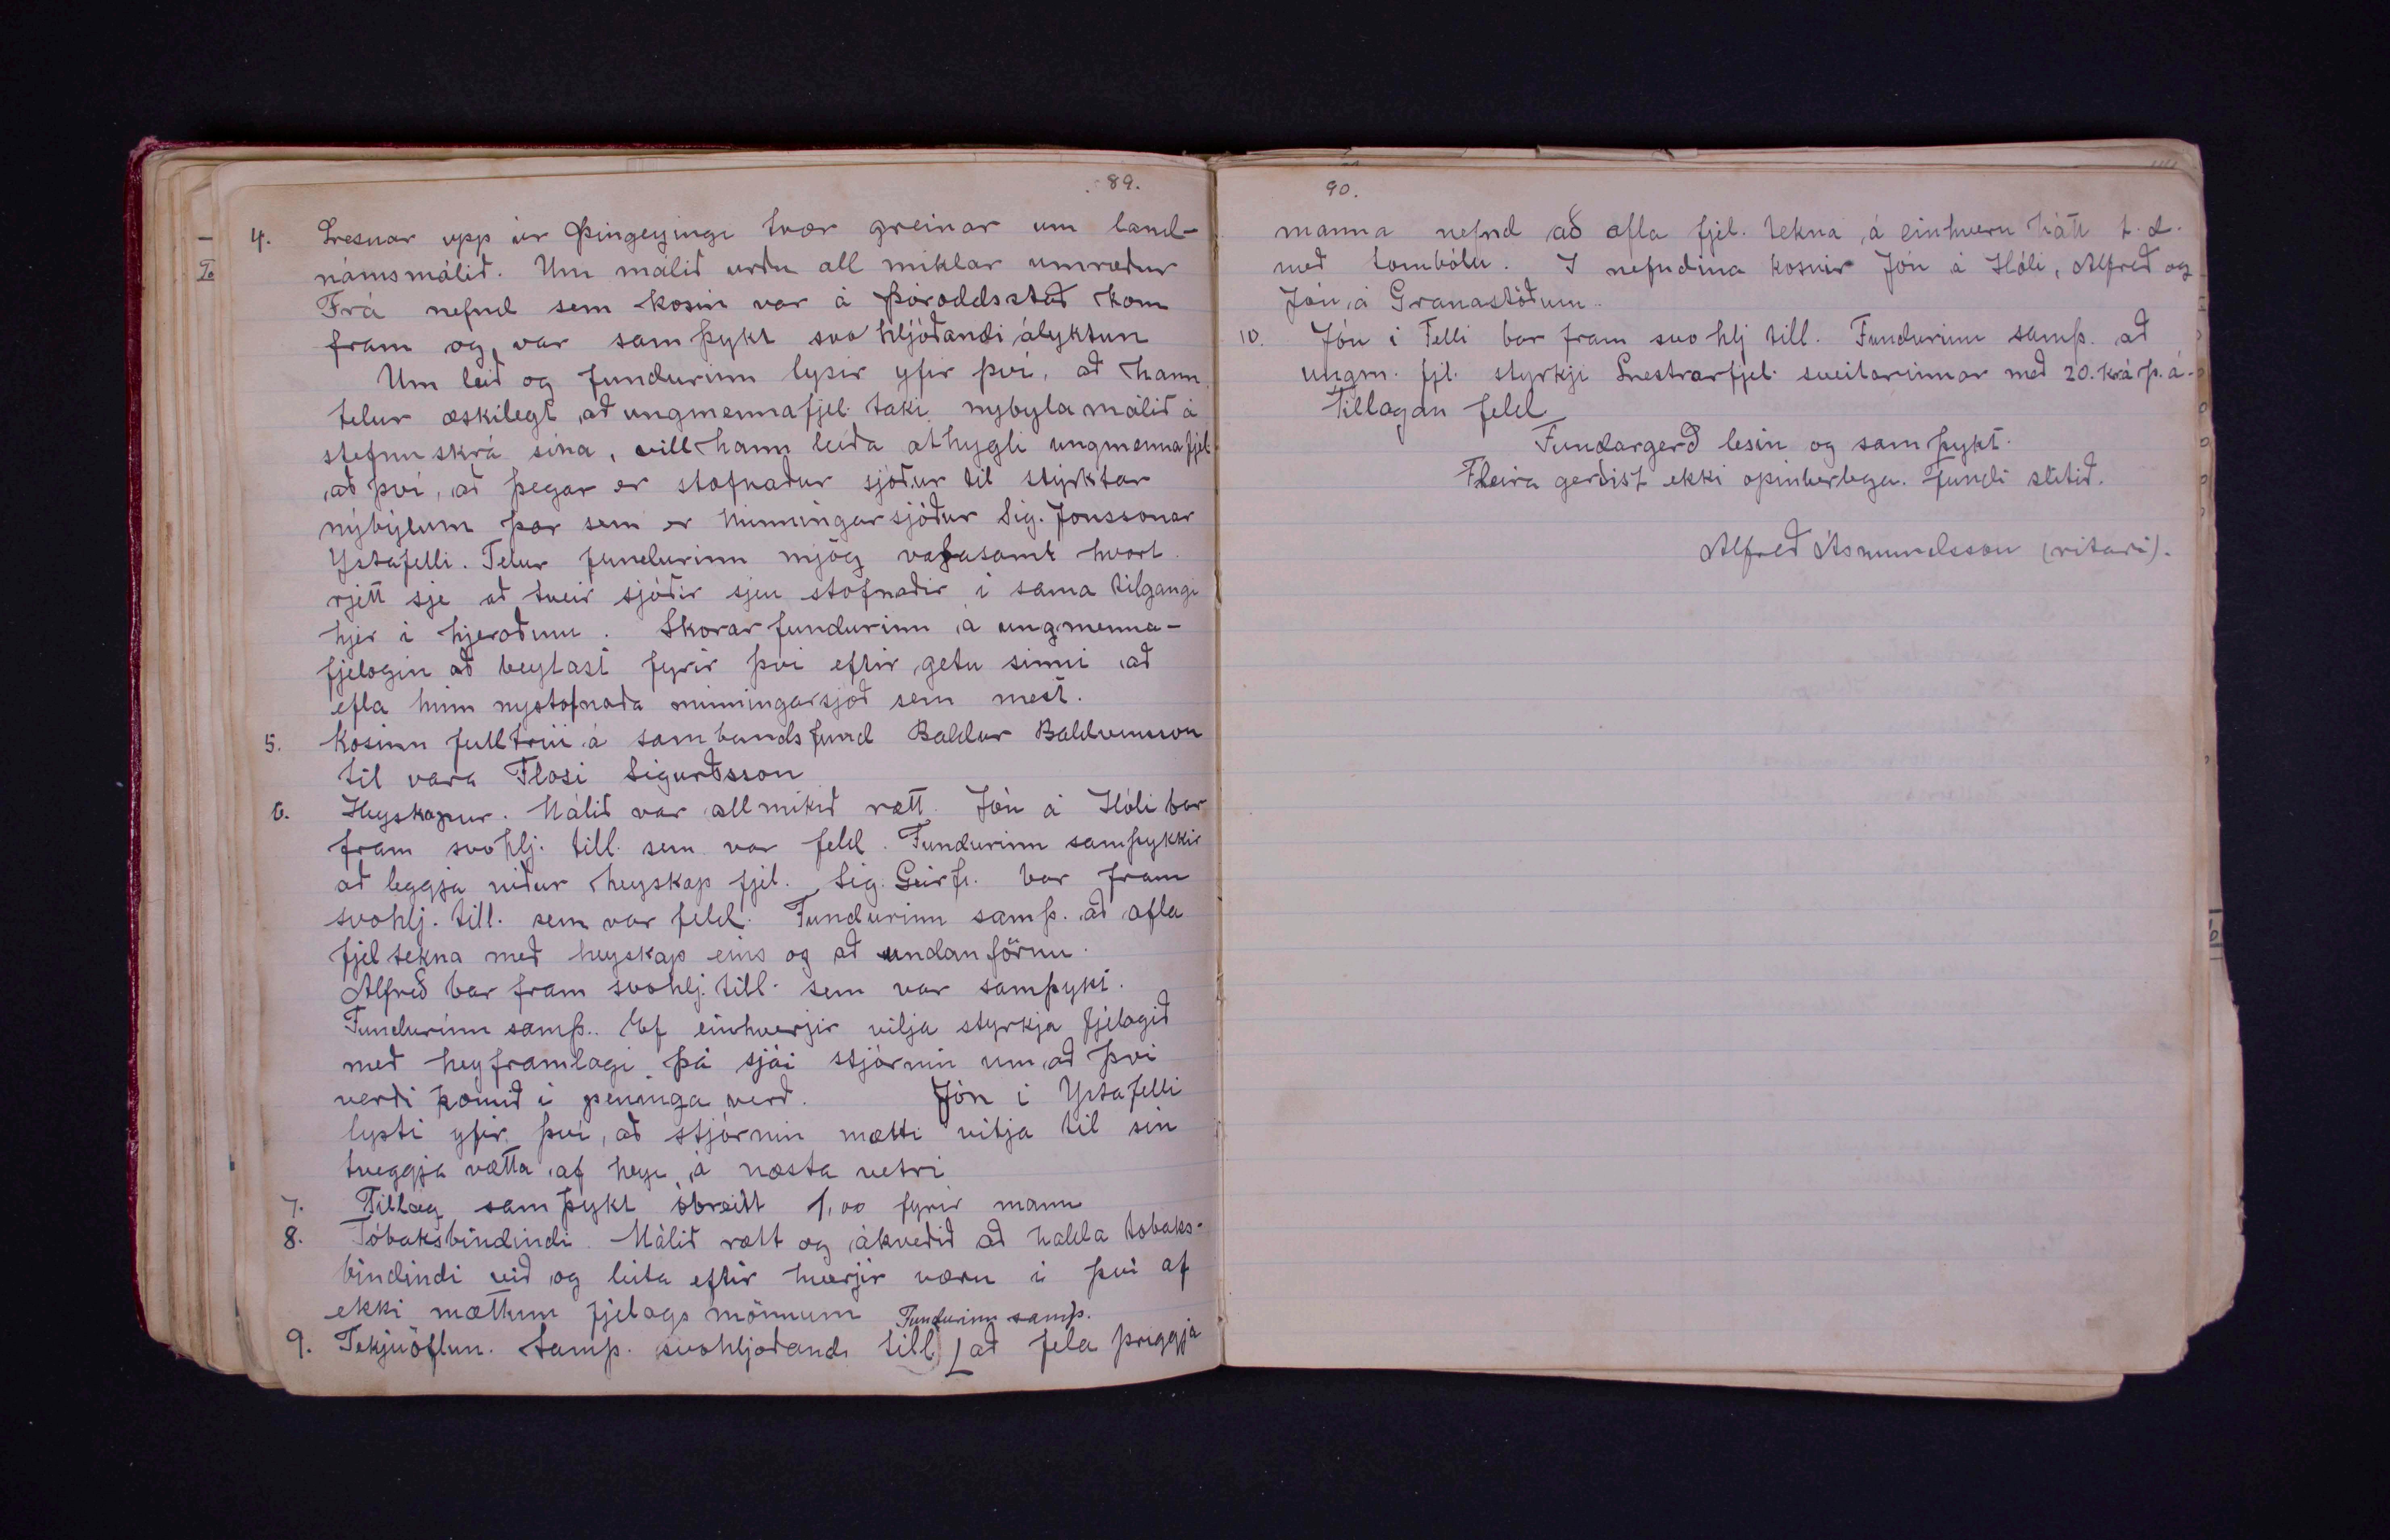 89.
4. Lesnar upp úr Þingeyingi tvær greinar um land-
námsmálið. Um málið urðu all miklar umræður
Frá nefnd sem kosin var á Þóroddsstað kom
fram og var samþykt svo hljóðandi ályktun
Um leið og fundurinn lysir yfir því, að hann
telur æskilegt að ungmennafjel. taki nybyla málið á
stefnuskrá sína, vill hann leiða athygli ungmennafjel.
að því, að þegar er stofnaður sjóður til styrktar
nýbýlum þar sem er Minningarsjóður Sig. Jónssonar
Ystafelli. Telur fundurinn mjög vafasamt hvort
rjett sje að tveir sjóðir sjeu stofnaðir í sama tilgangi
hjer í hjeraðinu. Skorar fundurinn á ungmenna-
fjelogin að beytast fyrir því eftir getu sinni að
efla hinn nystofnaða minningarsjoð sem mest.
5. Kosinn fulltrúi á sambandsfund Baldur Baldvinsson
til vara Flosi Sigurðsson
6. Heyskapur. Málið var allmikið rætt. Jón á Hóli bar
fram svohlj. till. sem var feld. Fundurinn samþykkir
að leggja niður heyskap fjel. Sig. Geirf. bar fram
svohlj. till. sem var feld. Fundurinn samþ. að afla
fjel tekna með heyskap eins og að undanförnu.
Alfreð bar fram svohlj. till. sem var samþykt.
Fundurinn samþ. Ef einhverjir vilja styrkja fjelagið
með heyframlagi þá sjái stjórnin um að því
verði komið í peninga verð. Jón í Ystafelli
lysti yfir því, að stjórnin mætti vitja til sín
tveggja vætta af heyi á næsta vetri
7. Tillag samþykt óbreitt 1,00 fyrir mann
8. Tóbaksbindindi. Málið rætt og ákveðið að halda tobaks-
bindindi við og leita eftir hverjir væru í því af
ekki mættum fjelagsmönnum Fundurinn samþ.
9. Tekjuöflun. Samþ. svohljoðandi till) að fela þriggja
90.
manna nefnd að afla fjel. tekna á einhvern hátt t.d.
með tombólu. I nefndina kosnir Jón á Hóli, Alfreð og
Jón á Granastöðum.
10. Jón í Felli bar fram svo hlj till. Fundurinn samþ. að
ungm. fjl. styrkji Lestrarfjel. sveitarinnar með 20. kr á p. á.
Tillagan feld
Fundargerð lesin og samþykt.
Fleira gerðist ekki opinberlega. Fundi slitið.
Alfreð Ásmundsson (ritari).